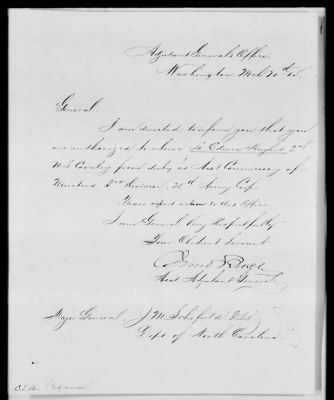 Adjutant General's Office
Washington Mch 20th 65.
General
I am directed to inform you that you
are authorized to relieve Lt. Edwin 2nd
U.S. Cavalry from duty as Asst Commissary of
Musters 2nd Division, 23rd Army Corps
Please report action to this Office
I am General Very Respectfully
Your Obedient Servant
Asst Adjutant General
Major General J. M. Schofield
Dept of North Carolina